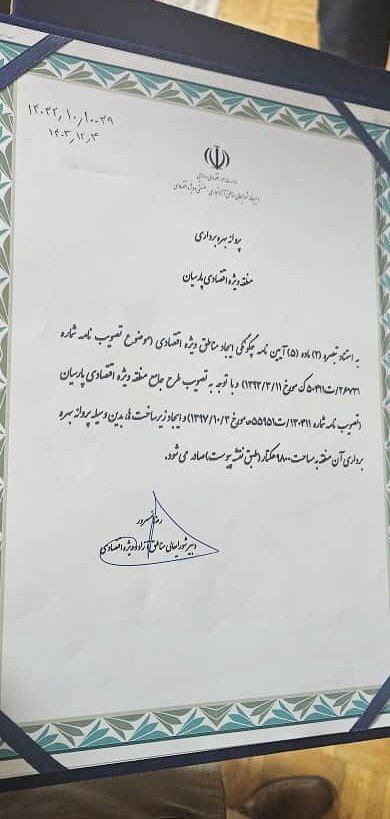 ۱۴۰۳٫۱۲٫۴
پروانه بهره برداری
منطقه ویژه اقتصادی پارسیان
به استناد تبصره (۲) ماده (۵) آیین نامه چگونگی ایجاد مناطق ویژه اقتصادی (موضوع تصویب نامه شماره
۲۶۷۳۱/ت۵۰۴۱۱ک مورخ ۱۳۹۳/۳/۱۱) و با توجه به تصویب طرح جامع منطقه ویژه اقتصادی پارسیان
(تصویب نامه شماره ۱۳۰۴۱۱/ت۵۵۹۵۱ه مورخ ۱۳۹۷/۱۰/۳) و ایجاد زیرساخت ها، بدین وسیله پروانه بهره
برداری آن منطقه به مساحت ۹۸۰۰ هکتار (طبق نقشه پیوست) صادر می شود.
رضا مسرور
دبیر شورایعالی مناطق آزاد و ویژه اقتصادی